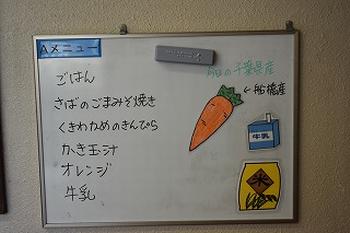 Aメニュー
ごはん
さばのごまみそ焼き
くきわかめのきんぴら
かき玉汁
オレンジ
牛乳
今日の千葉県産
←船橋産
牛乳
米